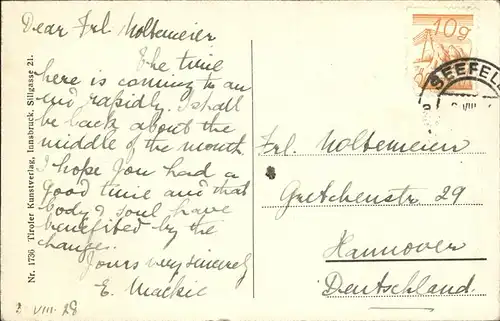 Dear Frl. Moltemeier
The time
here is coming to an
end rapidly. I shall
be back about the
middle of the month.
I hope you had a
good time and that
body & soul have
benefited by the
change.
Yours very sincerely
E. Mackie
2 VIII. 28
Nr. 1736 Tiroler Kunstverlag, Innsbruck, Sillgasse 21.
10g
SEEFEL
VIII
Frl. Moltemeier
Gretchenstr 29
Hannover
Deutschland.